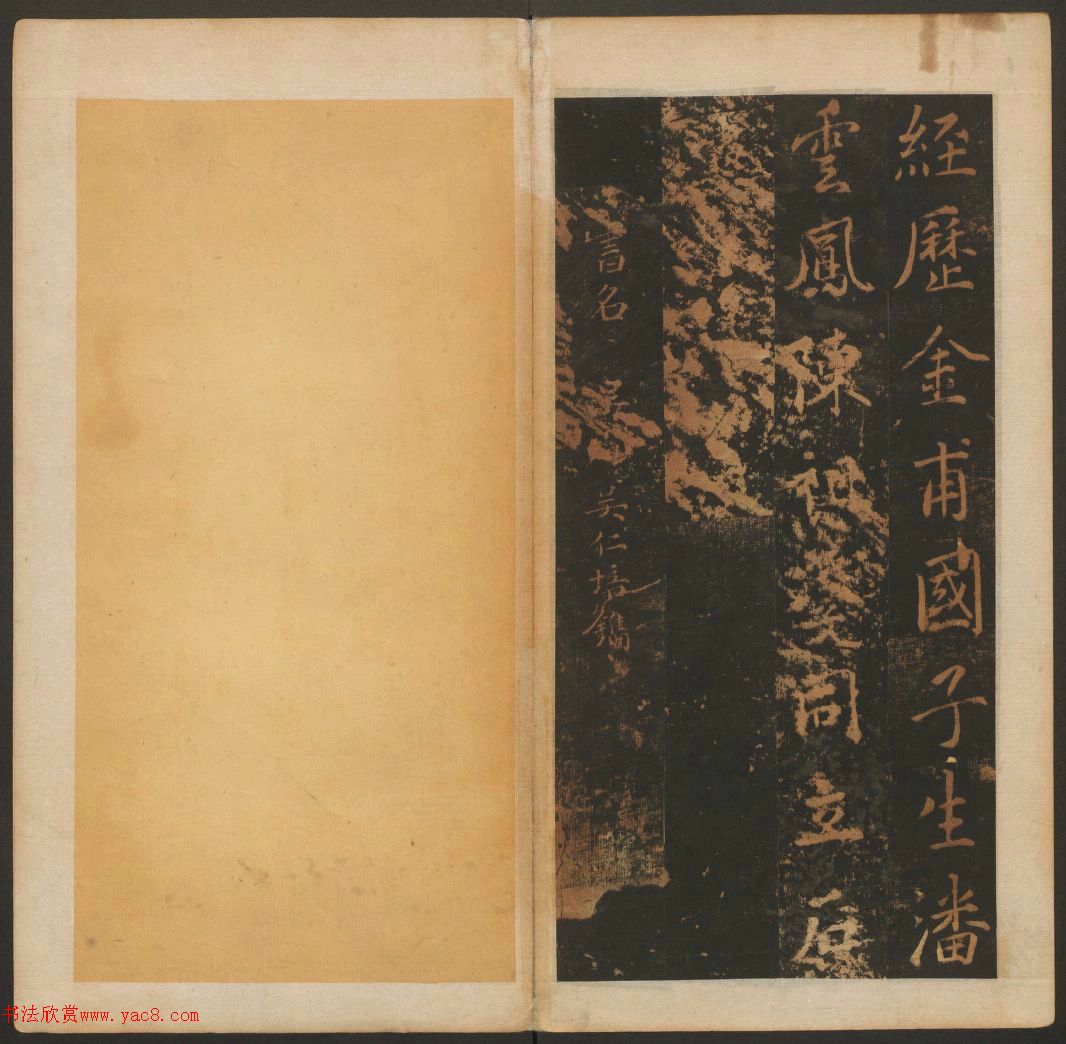 経歷金甫國子生潘
雲鳳陳祖
同立石
書名
吴仁培鐫
书法欣赏www.yac8.com